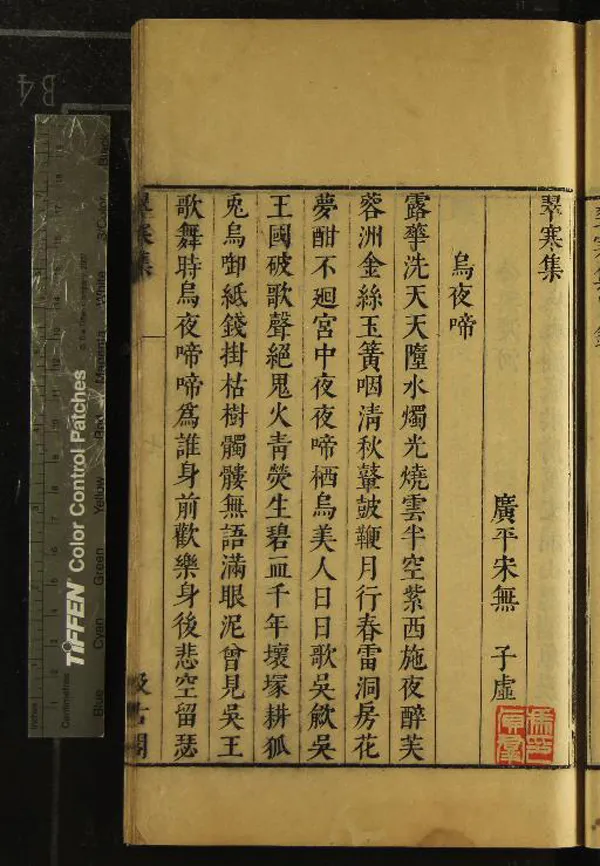 翠寒集
廣平宋無 子虛
烏夜啼
露華洗天天墮水燭光燒雲半空紫西施夜醉芙
蓉洲金絲玉簧咽清秋鼙鼓鞭月行春雷洞房花
夢酣不廻宮中夜夜啼栖烏美人日日歌吳歈吳
王國破歌聲絕鬼火青熒生碧血千年壞塚耕狐
兎烏啣紙錢掛枯樹髑髏無語滿眼泥曾見吳王
歌舞時烏夜啼啼爲誰身前歡樂身後悲空留瑟
翠寒集 一 汲古閣
TIFFEN Color Control Patches
Blue
Cyan
Green
Yellow
Red
Magenta
White
3/Color
Black
Inches
Centimetres
B4